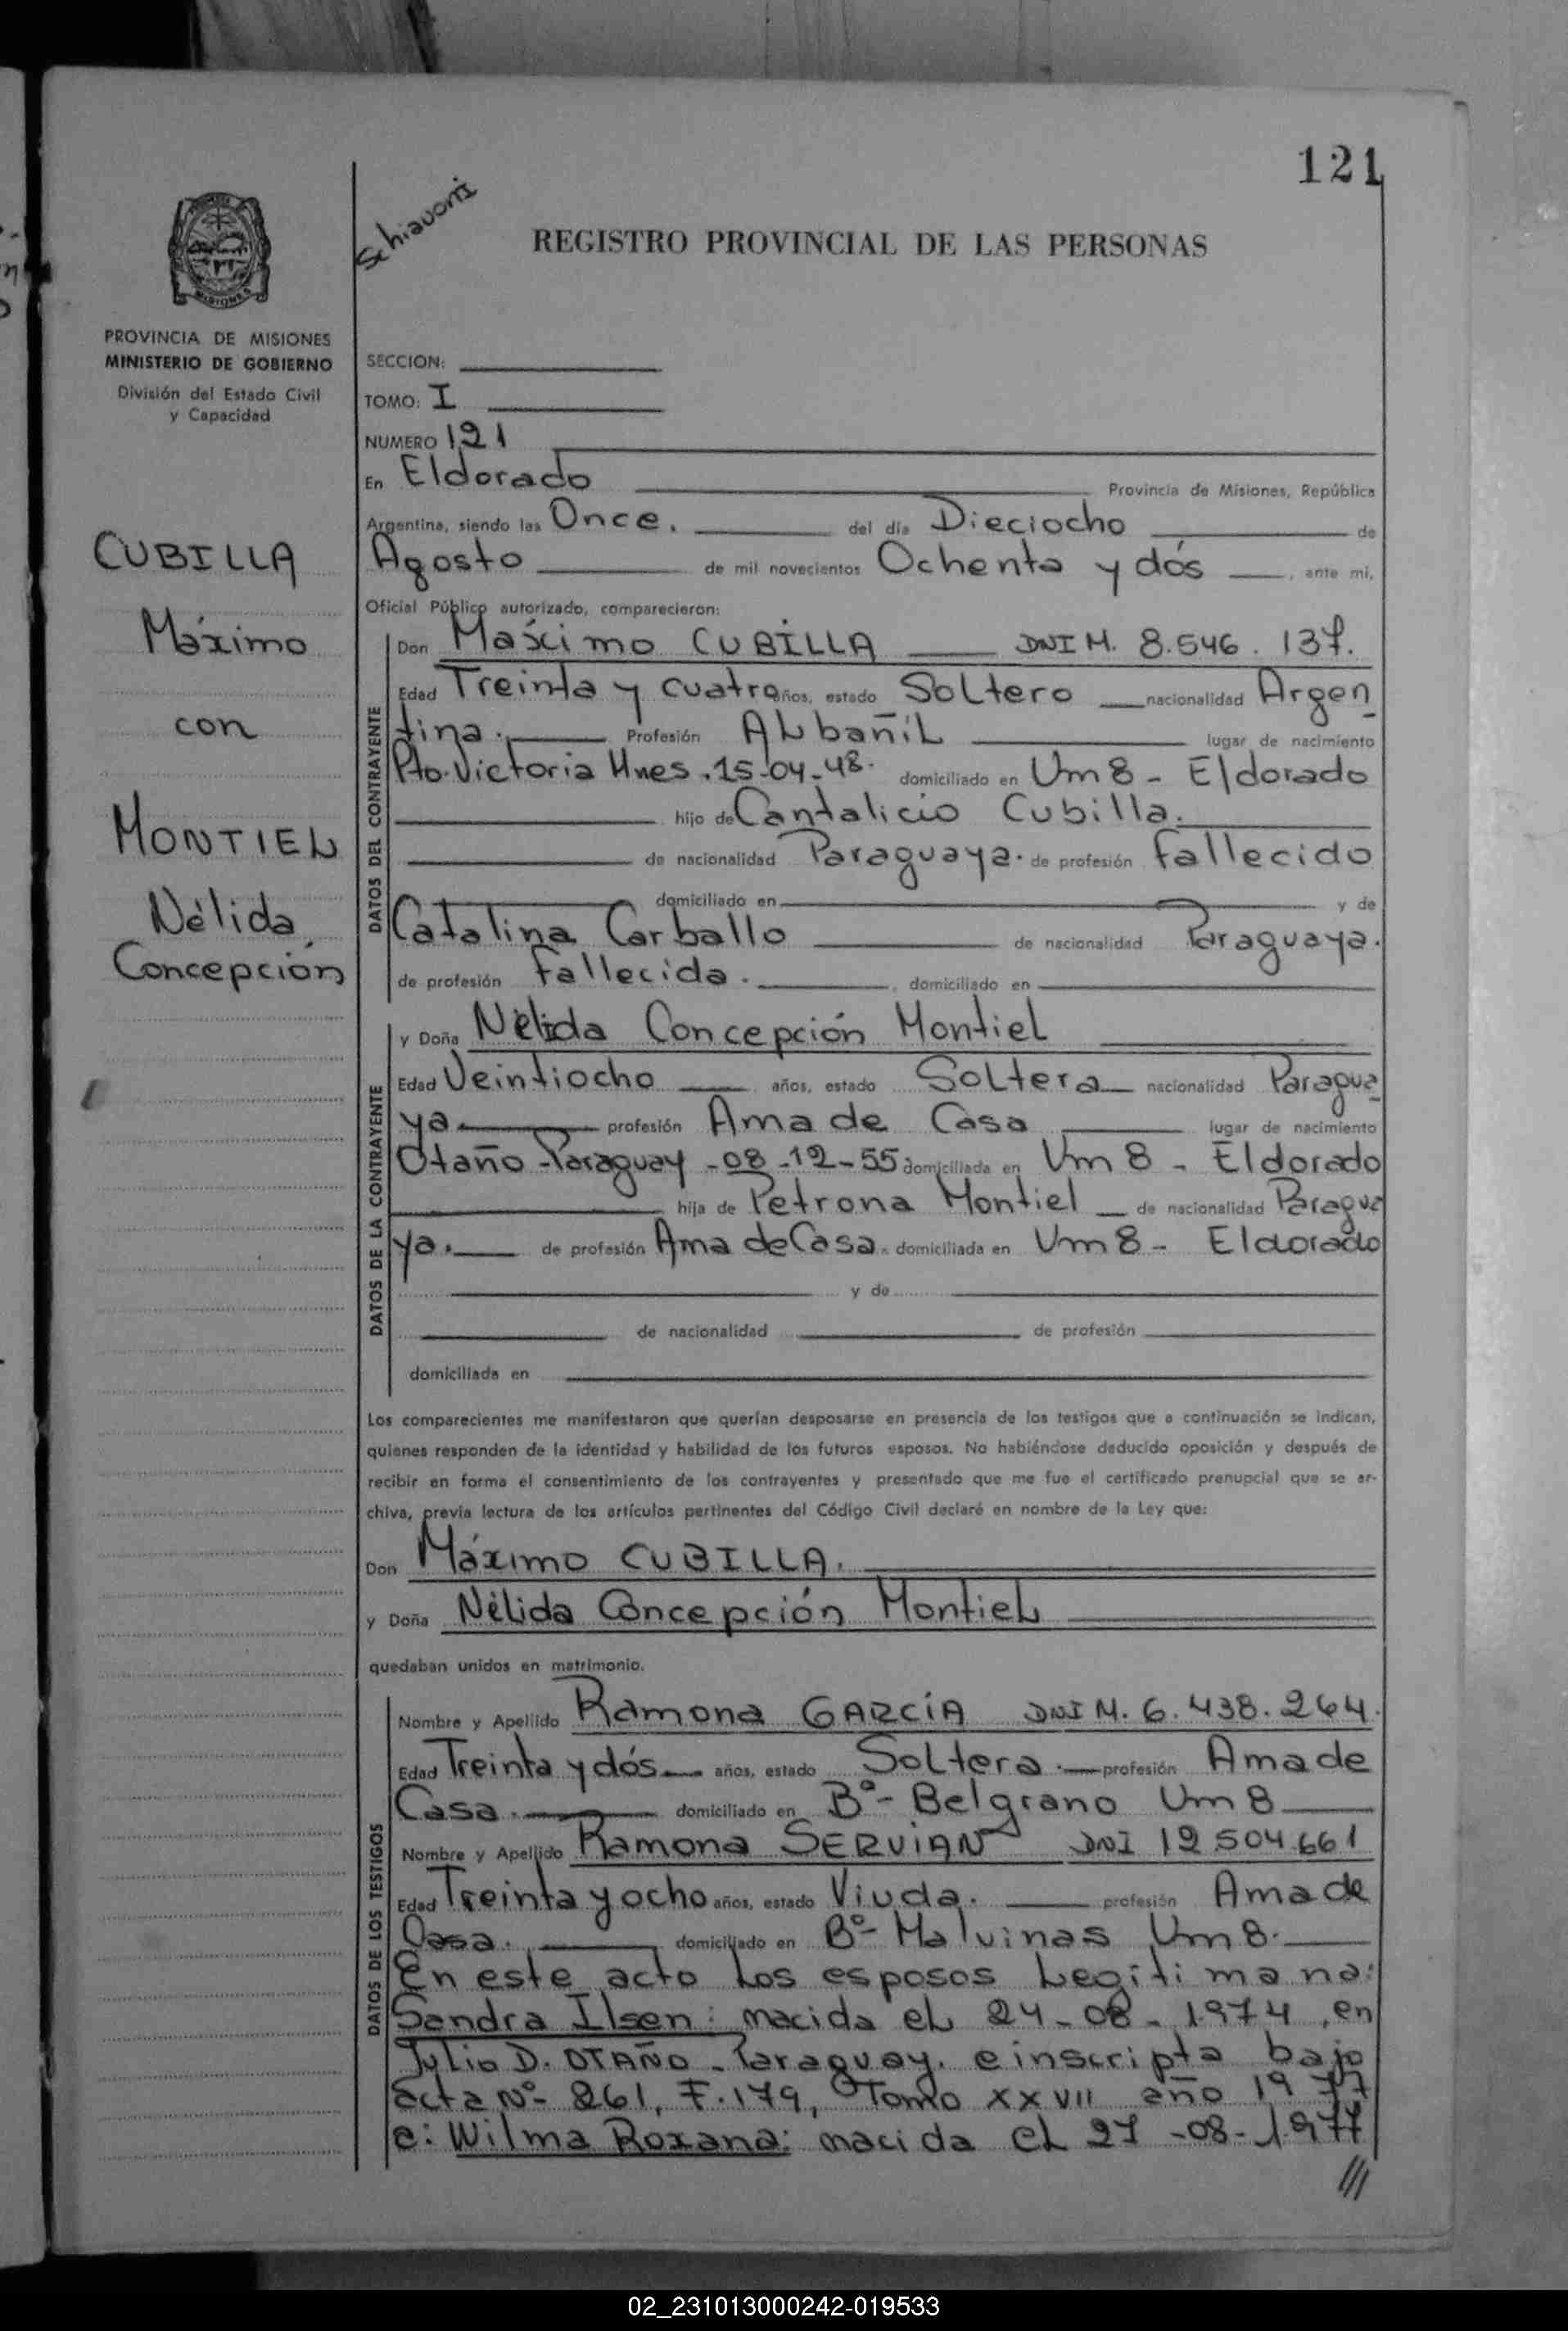 121
Schiavoni
REGISTRO PROVINCIAL DE LAS PERSONAS
MISIONES
PROVINCIA DE MISIONES
MINISTERIO DE GOBIERNO
División del Estado Civil
y Capacidad
SECCION:
TOMO: I
NUMERO 121
En Eldorado Provincia de Misiones, República
Argentina, siendo las Once. del día Dieciocho de
Agosto de mil novecientos Ochenta y dós, ante mi,
Oficial Público autorizado, comparecieron:
CUBILLA
Máximo
con
MONTIEL
Nélida
Concepción
DATOS DEL CONTRAYENTE
Don Máximo CUBILLA DNI M. 8.546.137.
Edad Treinta y cuatro años, estado Soltero nacionalidad Argen
tina. Profesión Albañil lugar de nacimiento
Pto. Victoria Mnes. 15-04-48. domiciliado en Um 8 - Eldorado
hijo de Cantalicio Cubilla.
de nacionalidad Paraguaya. de profesión Fallecido
domiciliado en y de
Catalina Carballo de nacionalidad Paraguaya.
de profesión Fallecida. , domiciliado en
DATOS DE LA CONTRAYENTE
y Doña Nélida Concepción Montiel
Edad Veintiocho años, estado Soltera nacionalidad Paragua
ya profesión Ama de Casa lugar de nacimiento
Otaño - Paraguay - 08-12-55 domiciliada en Um 8 - Eldorado
hija de Petrona Montiel de nacionalidad Paragua
ya. de profesión Ama de Casa. domiciliada en Um 8 - Eldorado
y de
de nacionalidad de profesión
domiciliada en
Los comparecientes me manifestaron que querían desposarse en presencia de los testigos que a continuación se indican,
quienes responden de la identidad y habilidad de los futuros esposos. No habiéndose deducido oposición y después de
recibir en forma el consentimiento de los contrayentes y presentado que me fue el certificado prenupcial que se ar-
chiva, previa lectura de los artículos pertinentes del Código Civil declaré en nombre de la Ley que:
Don Máximo CUBILLA.
y Doña Nélida Concepción Montiel
quedaban unidos en matrimonio.
DATOS DE LOS TESTIGOS
Nombre y Apellido Ramona GARCÍA DNI M. 6.438.264.
Edad Treinta y dós años, estado Soltera. profesión Ama de
Casa. domiciliado en Bº- Belgrano Um 8
Nombre y Apellido Ramona SERVIAN DNI 12504.661
Edad Treinta y ocho años, estado Viuda. profesión Ama de
Casa. domiciliado en Bº- Malvinas Um 8.
En este acto los esposos legitiman a:
Sandra Ilsen: nacida el 24-08-1974, en
Julio D. OTAÑO - Paraguay. e inscripta bajo
acta Nº- 261, F. 179, Tomo XXVII año 1977
e: Wilma Roxana: nacida el 27-08-1977
///
02_231013000242-019533